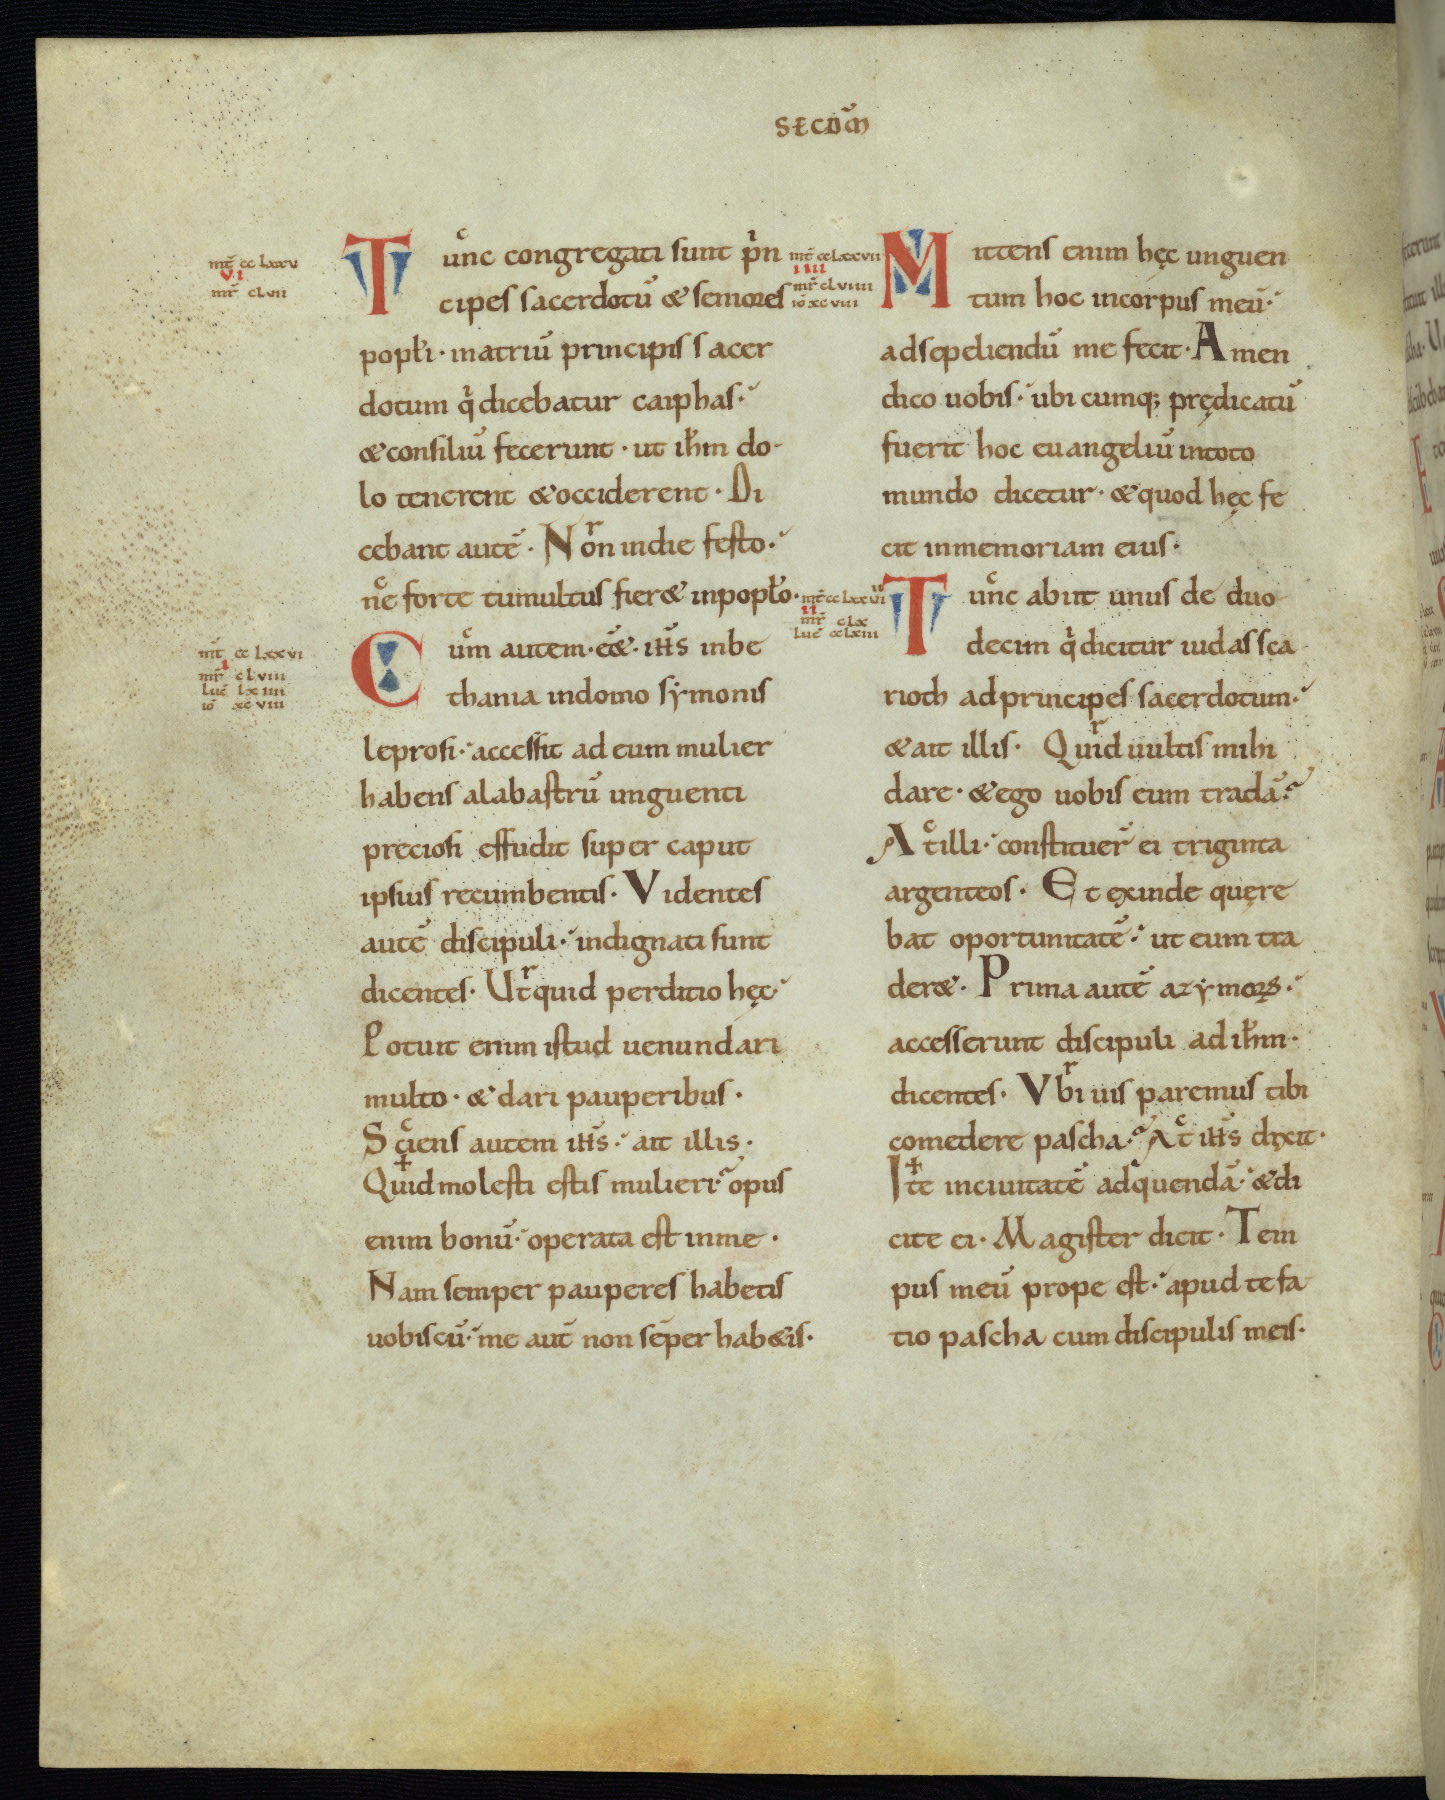 SECDM̄
mt̄ cc lxxv
vi
mr̄ clvii
Tunc congregati sunt pⁱn
cipes sacerdotū & seniores
popłi · in atriū principis sacer
dotum qⁱ dicebatur caiphas ·
& consiliū fecerunt · ut ihm̄ do-
lo tenerent & occiderent · Di
cebant autē · Non in die festo ·
ne forte tumultus fier& in popło ·
mt̄ cc lxxvi
i
mr̄ clviii
luc̄ lxiiii
iō xcviii
Cum autem · eēt · ihs̄ in be
thania in domo sẏmonis
leprosi · accessit ad eum mulier
habens alabastrū unguenti
preciosi effudit super caput
ipsius recumbentis · Videntes
autē discipuli · indignati sunt
dicentes · Ut quid perditio hęc ·
Potuit enim istud uenundari
multo · & dari pauperibus ·
Sciens autem ihs̄ · ait illis ·
Quid molesti estis mulieri · opus
enim bonū · operata est in me ·
Nam semper pauperes habetis
uobiscū · me aut̄ non sēper hab&is ·
mt̄ cc lxxvii
iiii
mr̄ clviiii
iō xcviii
Mittens enim hęc unguen
tum hoc in corpus meū ·
ad sepeliendū me fecit · Amen
dico uobis · ubicumq; prędicatū
fuerit hoc euangeliū in toto
mundo dicetur · & quod hęc fe
cit in memoriam eius ·
mt̄ cc lxxviii
ii
mr̄ clx
luc̄ cclxiii
Tunc abiit unus de duo
decim qⁱ dicitur iudas sca
rioth ad principes sacerdotum ·
& ait illis · Quid uultis mihi
dare · & ego uobis eum tradā ·
At illi · constituer̄ ei triginta
argenteos · Et exinde quęre
bat oportunitatē · ut eum tra
der& · Prima autē azymoꝝ ·
accesserunt discipuli ad ihm̄ ·
dicentes · Vbi uis paremus tibi
comedere pascha · At ihs̄ dixit ·
Ite in ciuitatē ad quendā · & di
cite ei · Magister dicit · Tem
pus meū prope est · apud te fa
tio pascha cum discipulis meis ·